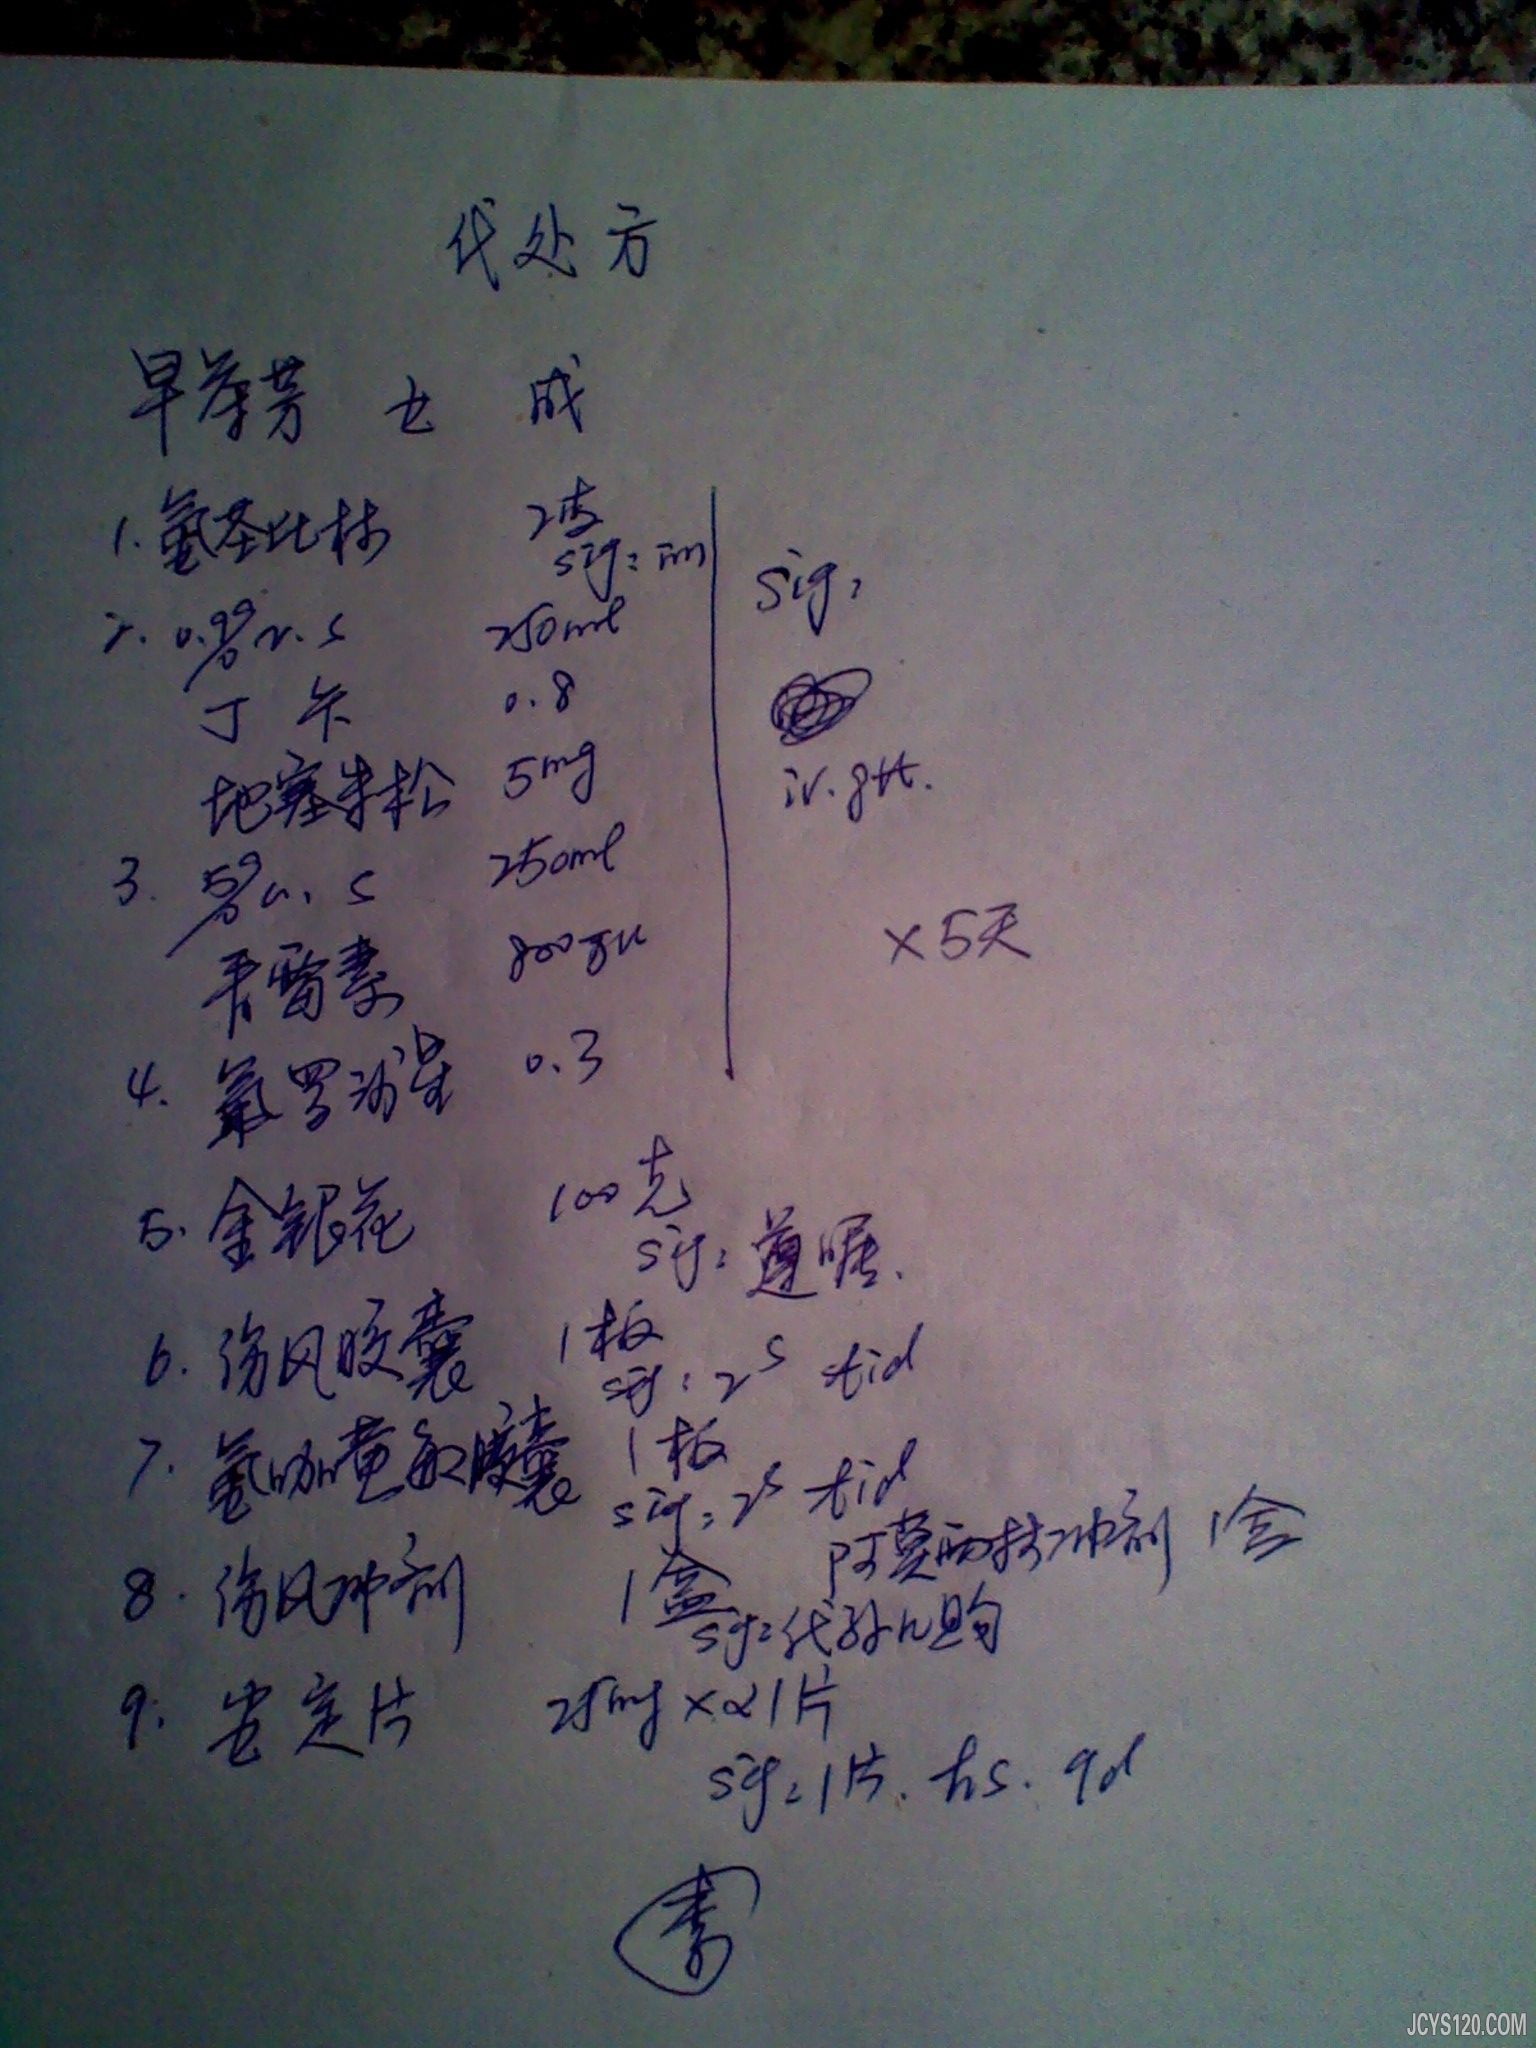 代处方
早茶芳 女 成
1. 氨基比林 2支
sig: im
2. 0.9% n.s 250ml
丁卡 0.8
地塞米松 5mg
3. 5% n.s 250ml
青霉素 800万u
4. 氧罗沙星 0.3
sig:
iv.gtt.
×5天
5. 金银花 100克
sig: 遵嘱.
6. 伤风胶囊 1板
sig: 2s tid
7. 氨咖黄敏胶囊 1板
sig: 2s tid
8. 伤风冲剂 1盒 阿莫西林冲剂 1盒
sig: 代孙儿购
9. 安定片 25mg × 21片
sig: 1片. hs. qd
李
JCYS120.COM